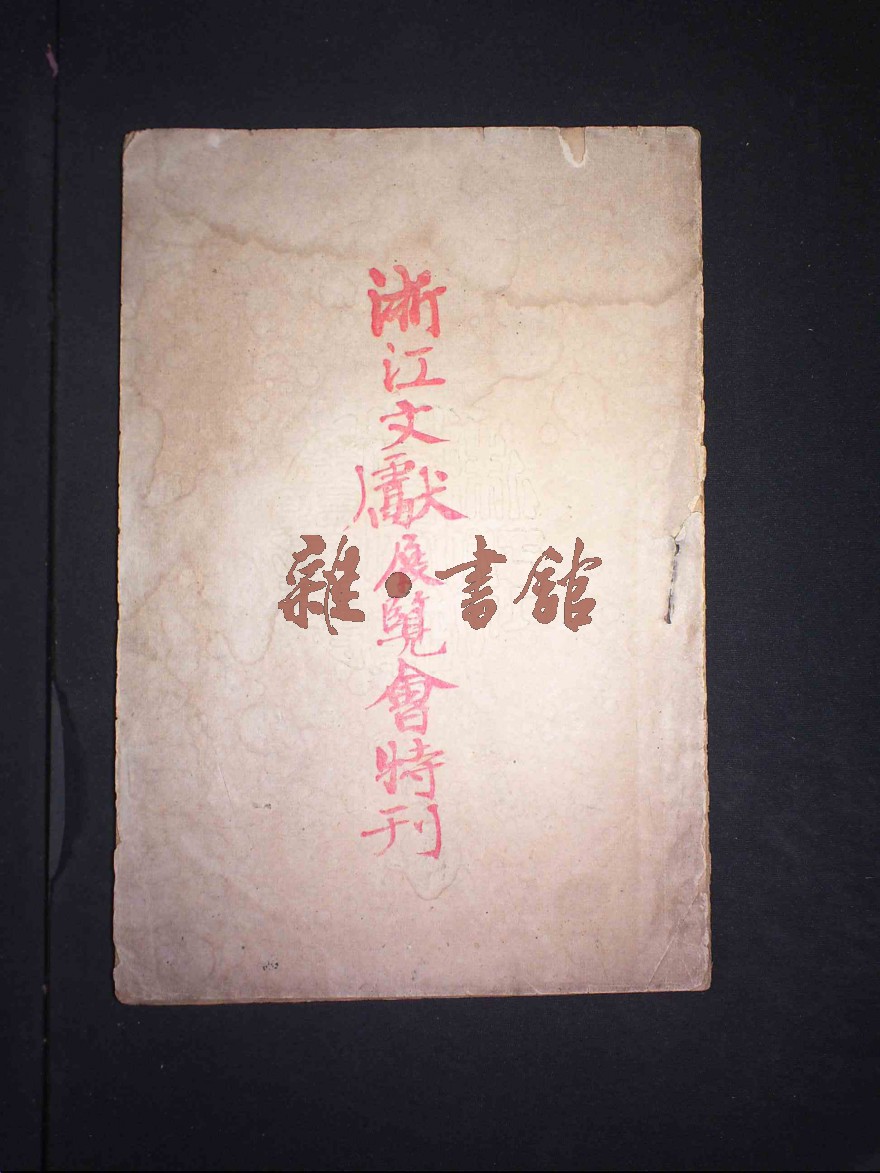 浙江文獻展覽會特刊
雜·書館